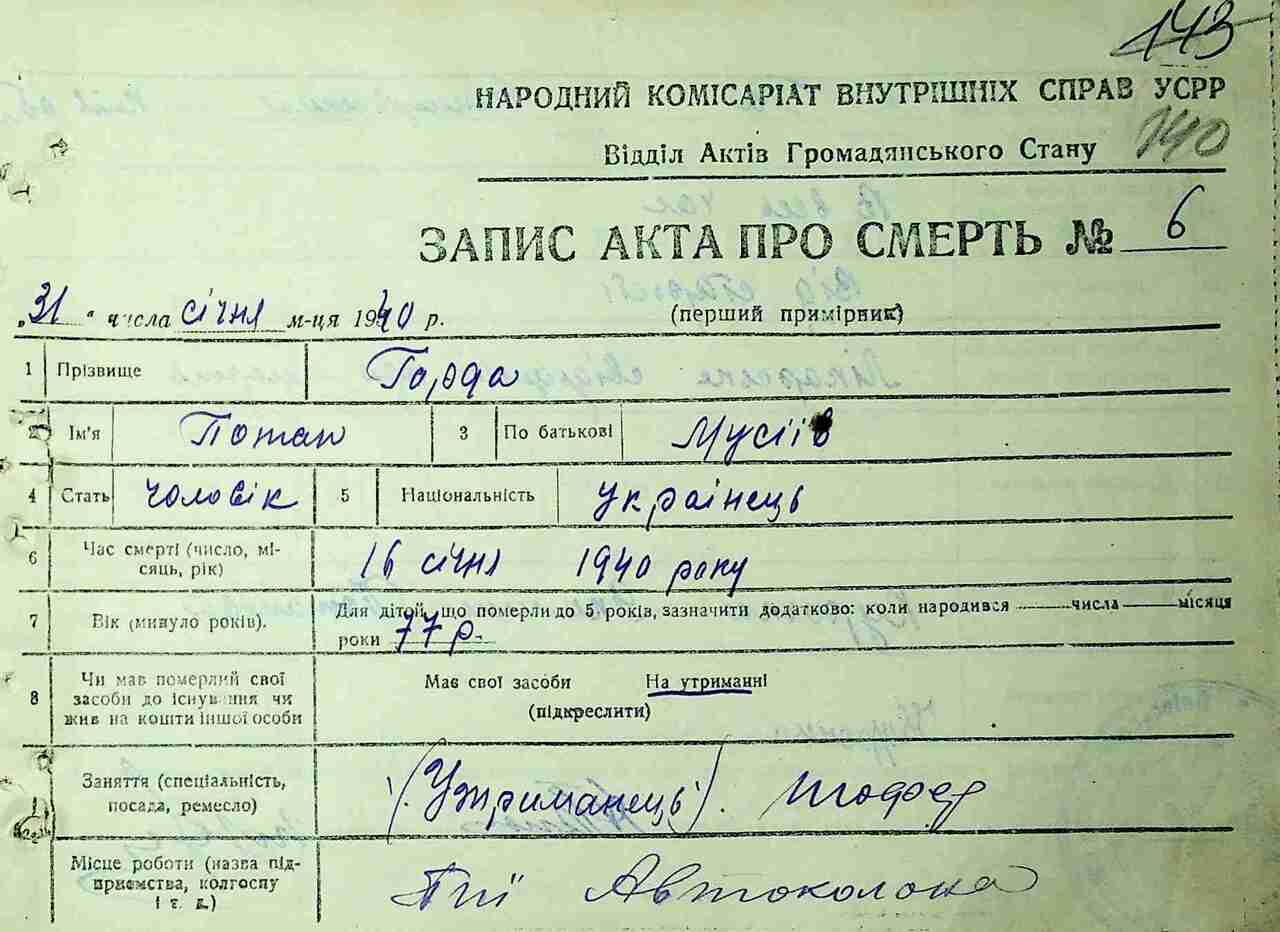 143
НАРОДНИЙ КОМІСАРІАТ ВНУТРІШНІХ СПРАВ УСРР
Відділ Актів Громадянського Стану 140
ЗАПИС АКТА ПРО СМЕРТЬ № 6
„31“ числа січня м-ця 1940 р. (перший примірник)
1 Прізвище Горда
2 Ім'я Потап 3 По батькові Мусіїв
4 Стать чоловік 5 Національність українець
6 Час смерті (число, мі-
сяць, рік) 16 січня 1940 року
7 Вік (минуло років). Для дітей, що померли до 5 років, зазначити додатково: коли народився числа місяця
роки 77 р.
8 Чи мав померлий свої
засоби до існування чи
жив на кошти іншої особи Має свої засоби На утриманні
(підкреслити)
Заняття (спеціальність,
посада, ремесло) (Утриманець). Шофер
Місце роботи (назва під-
приємства, колгоспу
і т. д.) Автоколона